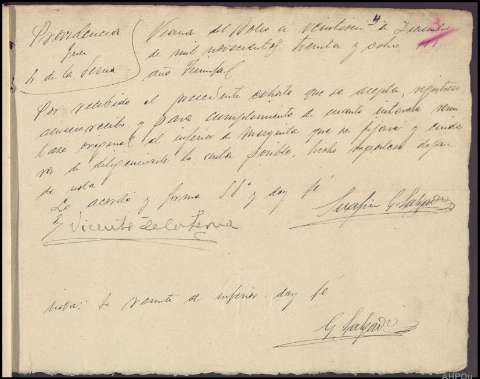 Providencia
Juez
Sr. de la Serna
Viana del Bollo a veintiseis de Diciembre
de mil novecientos treinta y ocho
año Triunfal
Por recibido el precedente exhorto que se acepta, registrese
acusese recibo y para cumplimiento de cuanto interesa remi
tase original al inferior de Mezquita que se fijara y cuida
ra de diligenciarlo lo antes posible, hecho dejar
de nota
Lo acordó y firma Sª y doy fé
Vicente de la Serna
Serafin G. Salgado
Nota: Se remite al inferior doy fé
G. Salgado
AHPOu